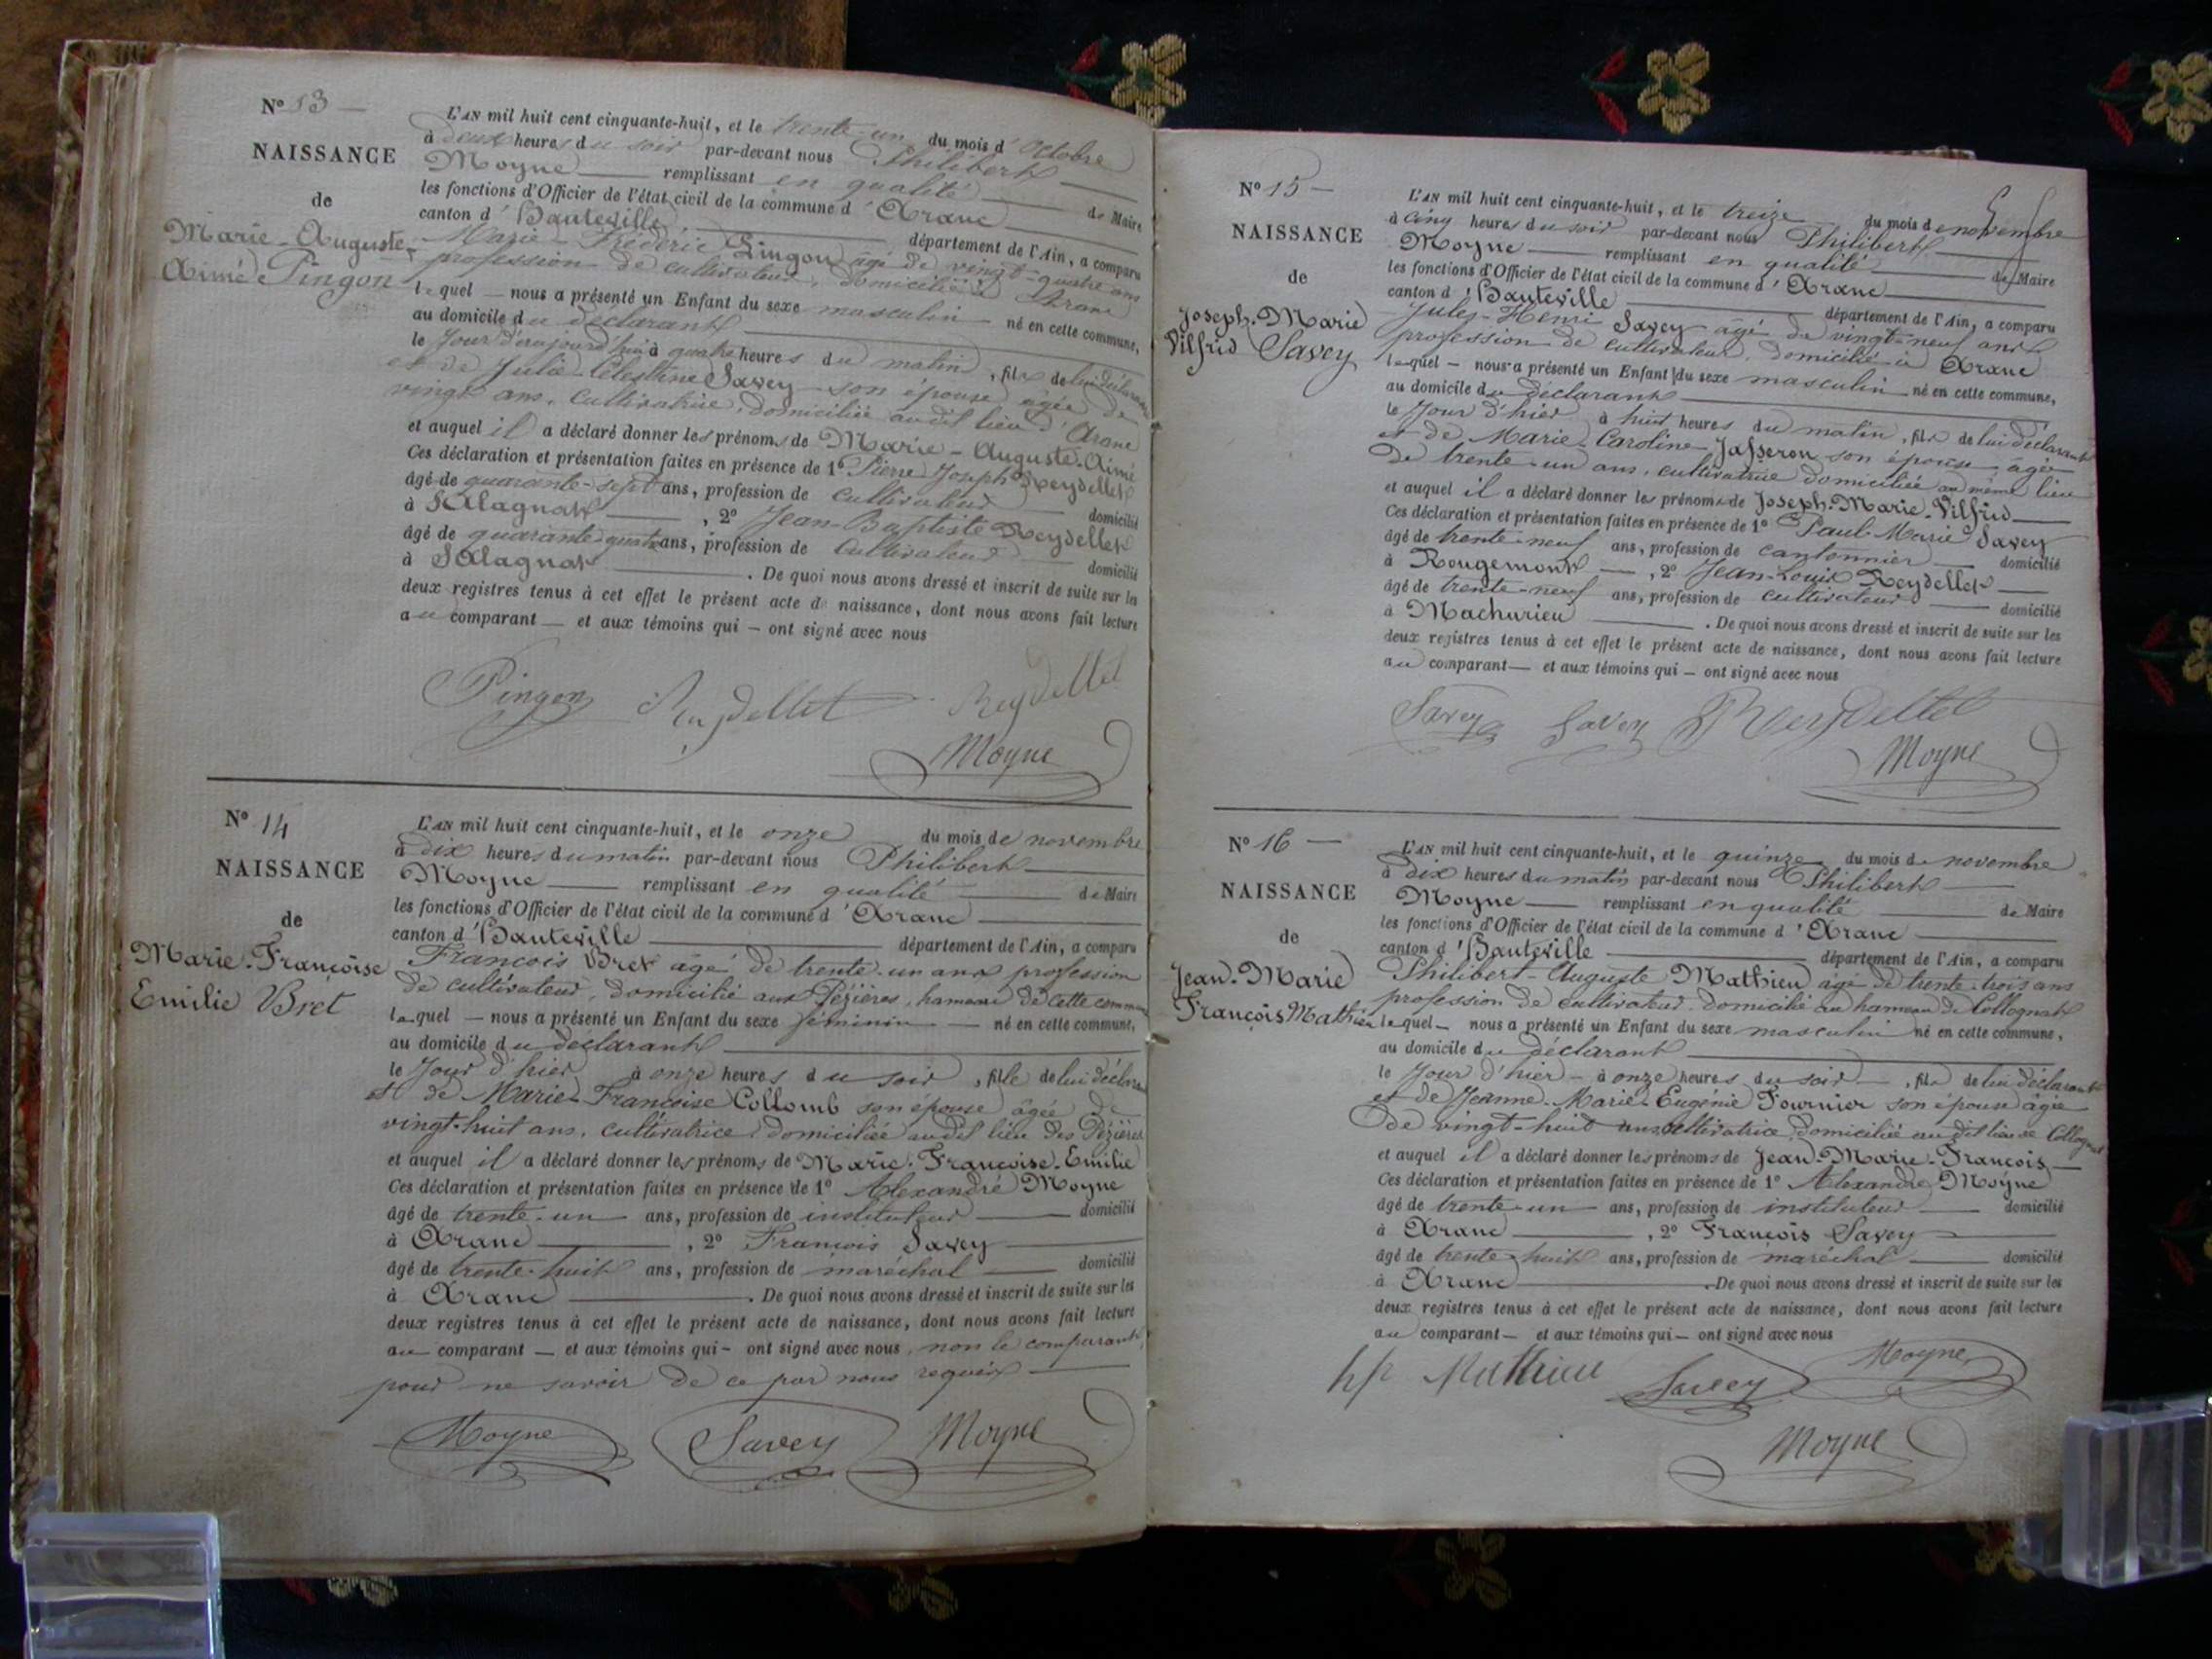 N° 13
NAISSANCE
de
Marie-Auguste-
Aimé Pingon
L'AN mil huit cent cinquante-huit, et le trente-un du mois d'Octobre
à deux heures du soir par-devant nous Philibert
Moyne remplissant en qualité de Maire
les fonctions d'Officier de l'état civil de la commune d'Aranc
canton d'Hauteville département de l'Ain, a comparu
Marie-Frédéric Pingon âgé de vingt-quatre ans
profession de cultivateur, domicilié à Aranc
lequel nous a présenté un Enfant du sexe masculin né en cette commune,
au domicile du déclarant
le Jour d'aujourd'hui à quatre heures du matin, fils de lui déclarant
et de Julie-Célestine Savey son épouse âgée de
vingt ans, cultivatrice, domiciliée audit lieu d'Aranc
et auquel il a déclaré donner les prénoms de Marie-Auguste-Aimé
Ces déclaration et présentation faites en présence de 1° Pierre Joseph Reydellet
âgé de quarante-sept ans, profession de cultivateur domicilié
à , 2° Jean-Baptiste Reydellet
âgé de quarante quatre ans, profession de Cultivateur domicilié
à . De quoi nous avons dressé et inscrit de suite sur les
deux registres tenus à cet effet le présent acte de naissance, dont nous avons fait lecture
au comparant et aux témoins qui ont signé avec nous
Pingon Reydellet Reydellet
Moyne
N° 14
NAISSANCE
de
Marie-Françoise
Emilie Bret
L'AN mil huit cent cinquante-huit, et le onze du mois de novembre
à dix heures du matin par-devant nous Philibert
Moyne remplissant en qualité de Maire
les fonctions d'Officier de l'état civil de la commune d'Aranc
canton d'Hauteville département de l'Ain, a comparu
François Bret âgé de trente-un ans profession
de cultivateur, domicilié aux Pézières, hameau de cette commune
lequel nous a présenté un Enfant du sexe féminin né en cette commune,
au domicile du déclarant
le Jour d'hier à onze heures du soir, fille de lui déclarant
et de Marie-Françoise Collomb son épouse âgée de
vingt-huit ans, cultivatrice domiciliée audit lieu des Pézières
et auquel il a déclaré donner les prénoms de Marie-Françoise-Emilie
Ces déclaration et présentation faites en présence de 1° Alexandre Moyne
âgé de trente-un ans, profession de instituteur domicilié
à Aranc, 2° François Savey
âgé de trente-huit ans, profession de maréchal domicilié
à Aranc. De quoi nous avons dressé et inscrit de suite sur les
deux registres tenus à cet effet le présent acte de naissance, dont nous avons fait lecture
au comparant et aux témoins qui ont signé avec nous, non le comparant
pour ne savoir de ce par nous requis
Moyne Savey Moyne
N° 15
NAISSANCE
de
Joseph-Marie
Vilfrid Savey
L'AN mil huit cent cinquante-huit, et le treize du mois de novembre
à cinq heures du soir par-devant nous Philibert
Moyne remplissant en qualité de Maire
les fonctions d'Officier de l'état civil de la commune d'Aranc
canton d'Hauteville département de l'Ain, a comparu
Jules-Henri Savey âgé de vingt-neuf ans
profession de cultivateur, domicilié à Aranc
lequel nous a présenté un Enfant du sexe masculin né en cette commune,
au domicile du déclarant
le Jour d'hier à huit heures du matin, fils de lui déclarant
et de Marie-Caroline Jasseron son épouse âgée
de trente-un ans, cultivatrice domiciliée au même lieu
et auquel il a déclaré donner les prénoms de Joseph-Marie-Vilfrid
Ces déclaration et présentation faites en présence de 1° Paul-Marie Savey
âgé de trente-neuf ans, profession de cantonnier domicilié
à Rougemont, 2° Jean-Louis Reydellet
âgé de trente-neuf ans, profession de cultivateur domicilié
à Machurieu. De quoi nous avons dressé et inscrit de suite sur les
deux registres tenus à cet effet le présent acte de naissance, dont nous avons fait lecture
au comparant et aux témoins qui ont signé avec nous
Savey Savey Reydellet
Moyne
N° 16
NAISSANCE
de
Jean-Marie
François Mathieu
L'AN mil huit cent cinquante-huit, et le quinze du mois de novembre
à dix heures du matin par-devant nous Philibert
Moyne remplissant en qualité de Maire
les fonctions d'Officier de l'état civil de la commune d'Aranc
canton d'Hauteville département de l'Ain, a comparu
Philibert-Auguste Mathieu âgé de trente-trois ans
profession de cultivateur domicilié au hameau de Collognat
lequel nous a présenté un Enfant du sexe masculin né en cette commune,
au domicile du déclarant
le Jour d'hier à onze heures du soir, fils de lui déclarant
et de Jeanne-Marie-Eugénie Fournier son épouse âgée
de vingt-huit ans, cultivatrice domiciliée au dit lieu de Collognat
et auquel il a déclaré donner les prénoms de Jean-Marie-François
Ces déclaration et présentation faites en présence de 1° Alexandre Moyne
âgé de trente-un ans, profession de instituteur domicilié
à Aranc, 2° François Savey
âgé de trente-huit ans, profession de maréchal domicilié
à Aranc. De quoi nous avons dressé et inscrit de suite sur les
deux registres tenus à cet effet le présent acte de naissance, dont nous avons fait lecture
au comparant et aux témoins qui ont signé avec nous
Mathieu Savey Moyne
Moyne